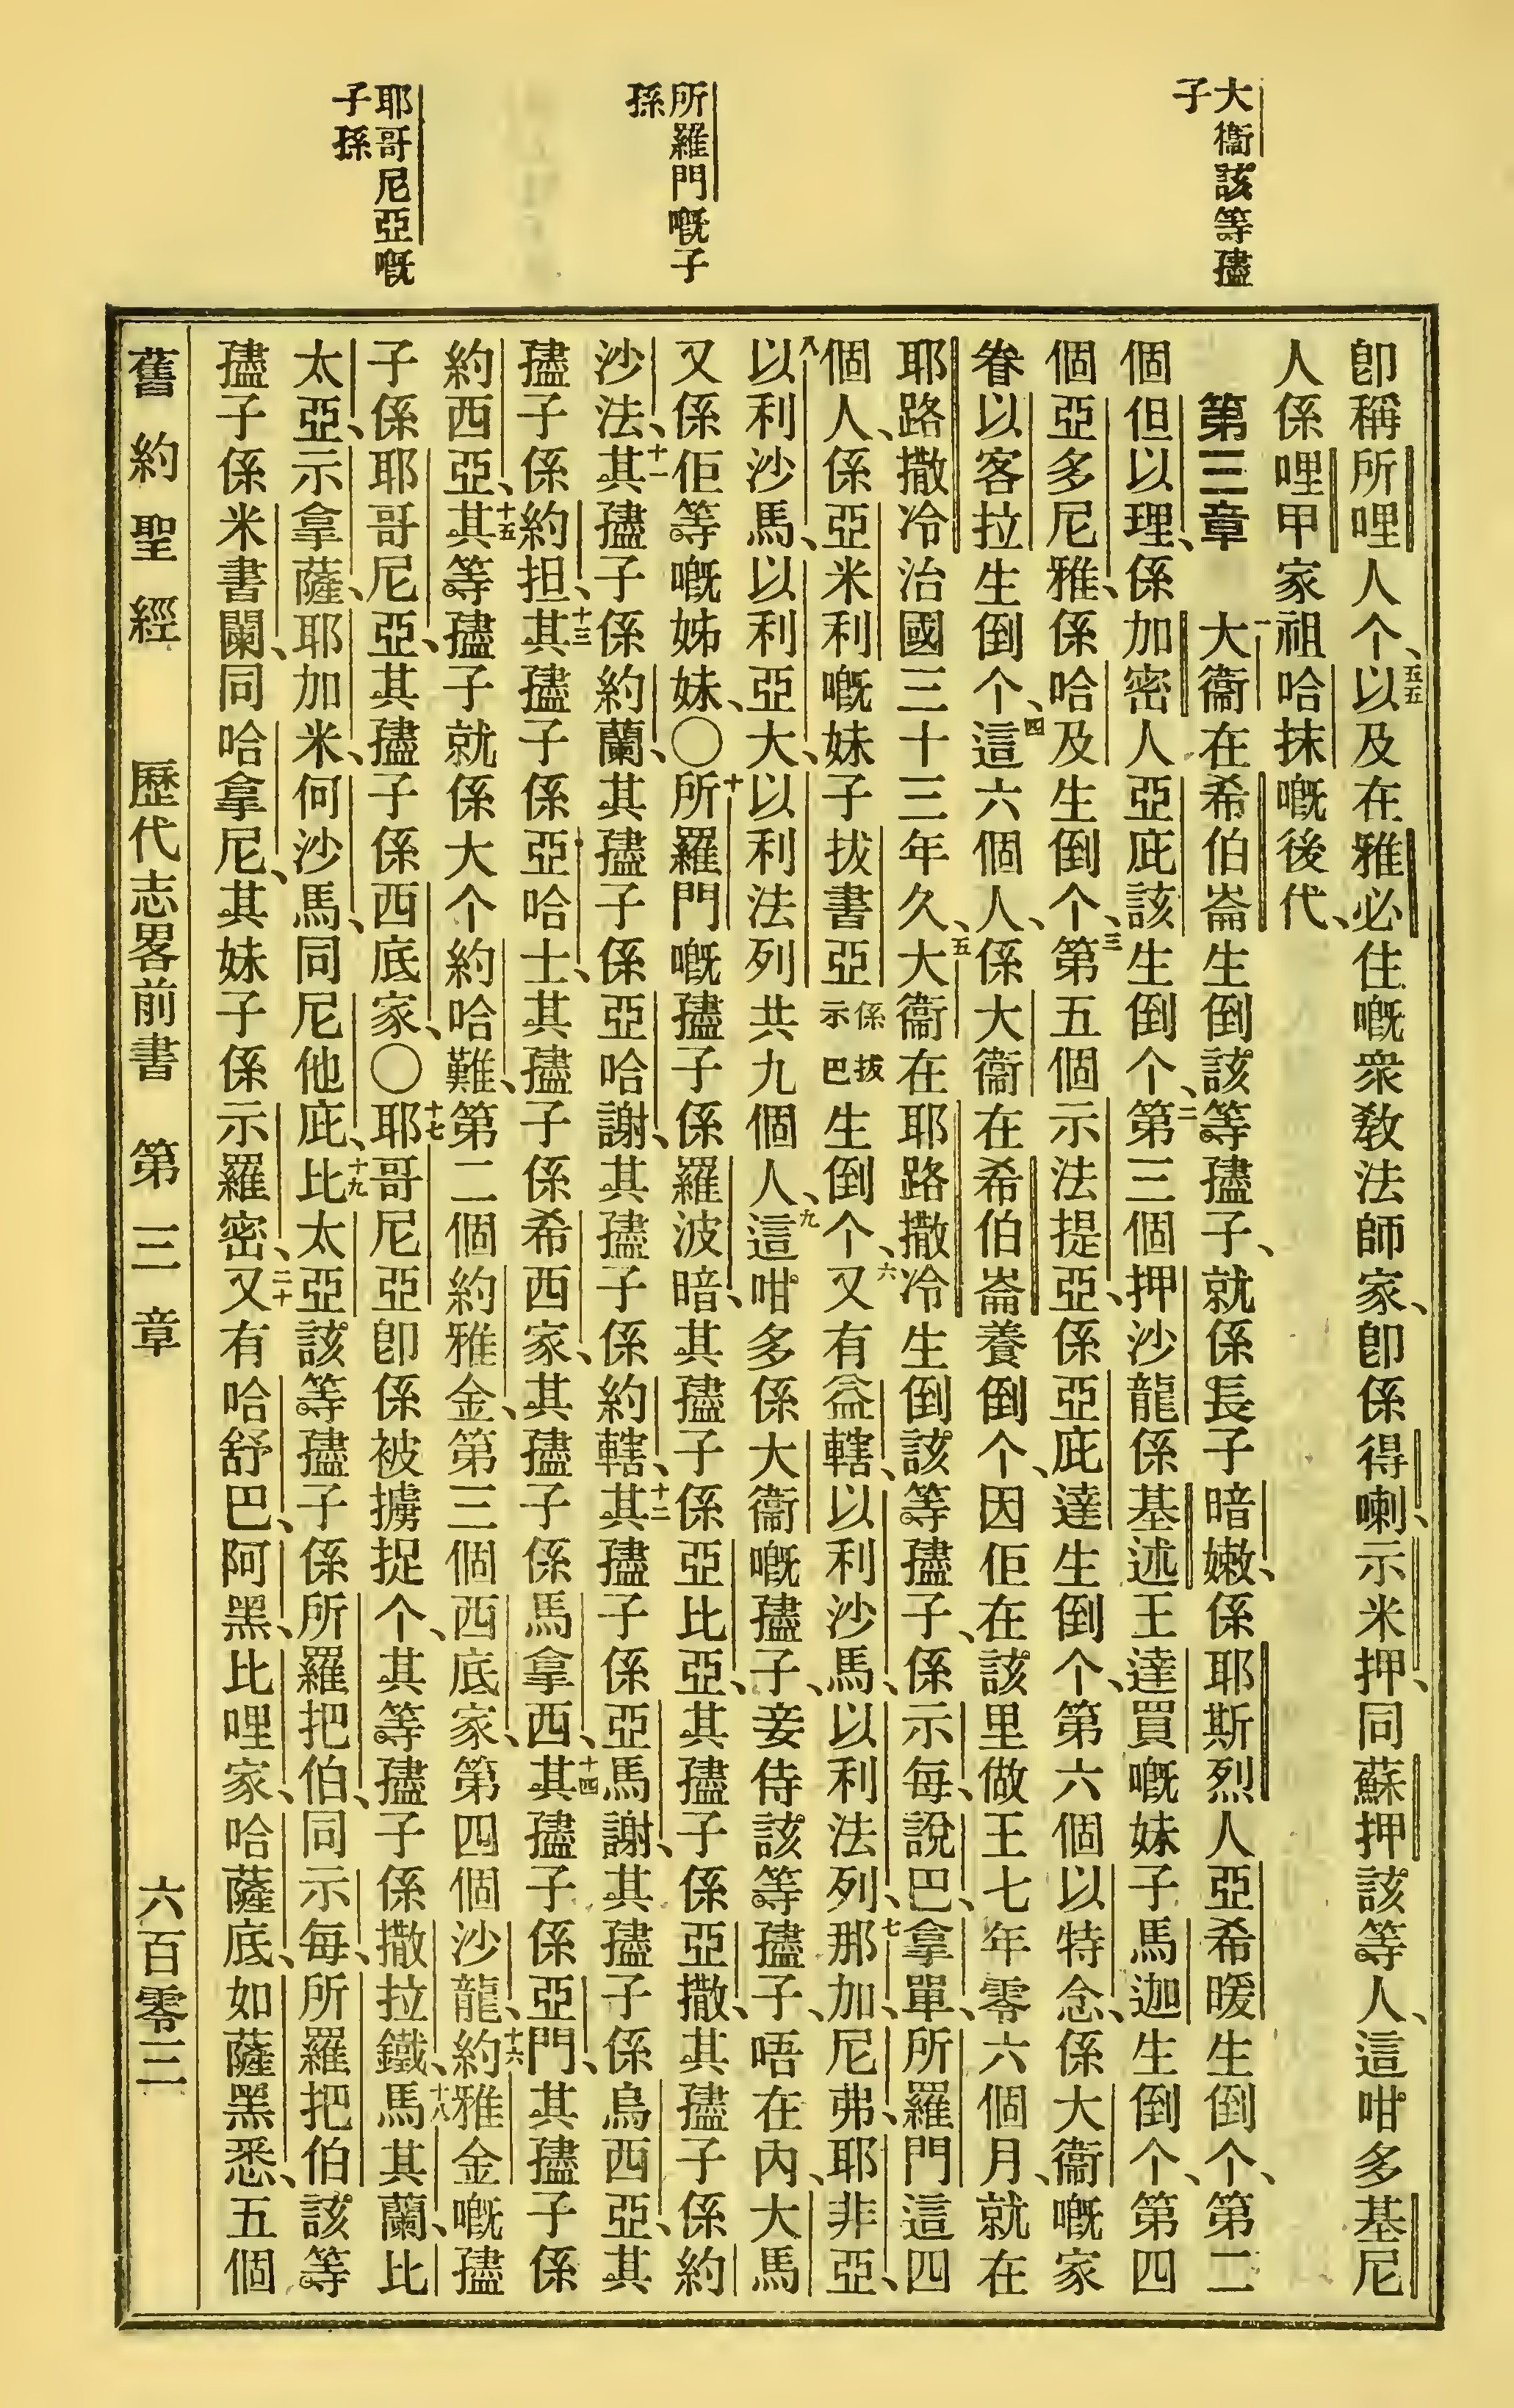 大衞該等孻
子
所羅門嘅子
孫
耶哥尼亞嘅
子孫
卽稱所哩人个、五五以及在雅必住嘅衆敎法師家、卽係得喇、示米押、同蘇押該等人、這咁多基尼
人係哩甲家祖哈抹嘅後代、
第三章 一大衞在希伯崙生倒該等孻子、就係長子暗嫩、係耶斯烈人亞希暖生倒个、第二
個但以理、係加密人亞庇該生倒个、二第三個押沙龍係基述王達買嘅妹子馬迦生倒个、第四
個亞多尼雅、係哈及生倒个、三第五個示法提亞、係亞庇達生倒个、第六個以特念、係大衞嘅家
眷以客拉生倒个、四這六個人、係大衞在希伯崙養倒个、因佢在該里做王七年零六個月、就在
耶路撒冷治國三十三年久、五大衞在耶路撒冷生倒該等孻子、係示每、說巴、拿單、所羅門這四
個人、係亞米利嘅妹子拔書亞係拔示巴生倒个、六又有益轄、以利沙馬、以利法列、七那加、尼弗、耶非亞、
八以利沙馬、以利亞大、以利法列共九個人、九這咁多係大衞嘅孻子、妾侍該等孻子、唔在內、大馬
又係佢等嘅姊妹、〇十所羅門嘅孻子係羅波暗、其孻子係亞比亞、其孻子係亞撒、其孻子係約
沙法、十一其孻子係約蘭、其孻子係亞哈謝、其孻子係約轄、十二其孻子係亞馬謝、其孻子係烏西亞、其
孻子係約担、十三其孻子係亞哈士、其孻子係希西家、其孻子係馬拿西、十四其孻子係亞門、其孻子係
約西亞、十五其等孻子就係大个約哈難、第二個約雅金、第三個西底家、第四個沙龍、十六約雅金嘅孻
子係耶哥尼亞、其孻子係西底家、〇十七耶哥尼亞卽係被擄捉个、其等孻子係撒拉鐵、十八馬其蘭、比
太亞、示拿薩、耶加米、何沙馬、同尼他庇、十九比太亞該等孻子係所羅把伯、同示每、所羅把伯該等
孻子係米書闌、同哈拿尼、其妹子係示羅密、二十又有哈舒巴、阿黑、比哩家、哈薩底、如薩黑悉、五個
舊約聖經 歷代志畧前書 第三章 六百零三